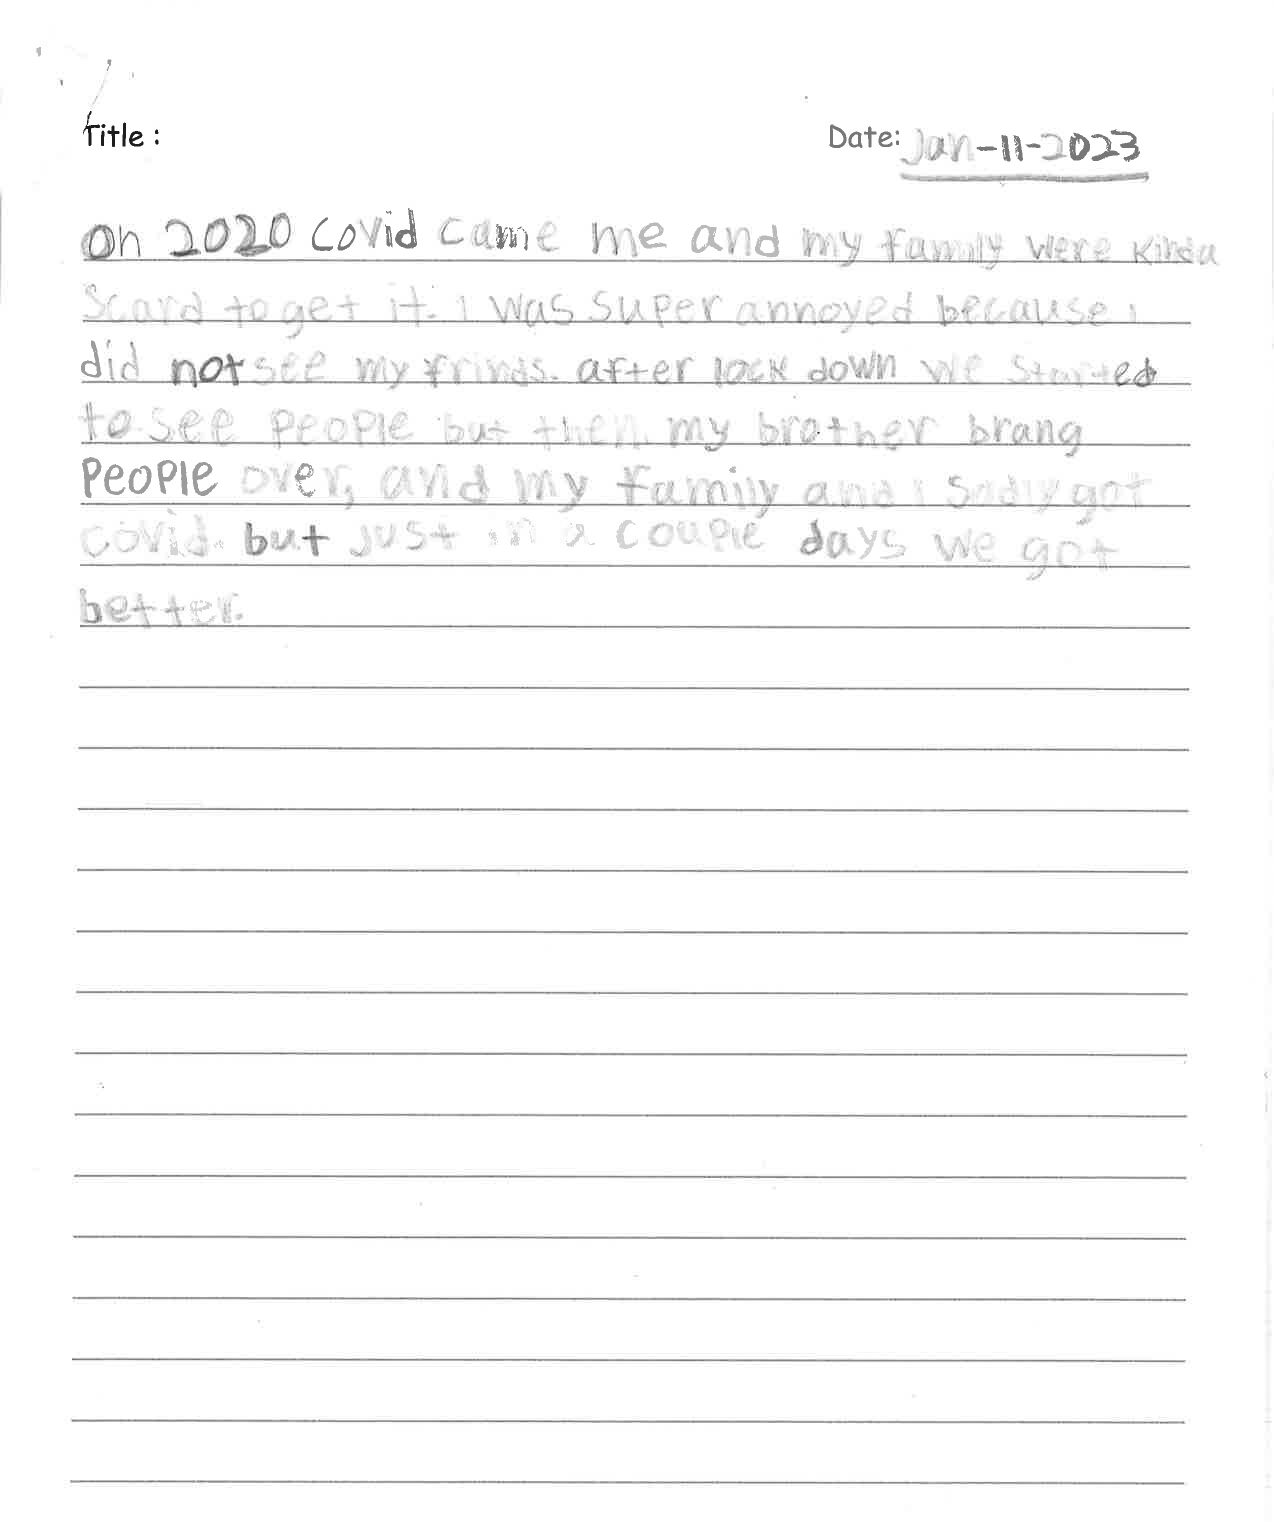 Title :
Date: Jan-11-2023
On 2020 covid came me and my family were kinda
scard to get it. I was super annoyed because i
did not see my frinds. after lock down we started
to see people but then my brother brang
people over, and my family and i sadly got
covid. but just in a couple days we got
better.